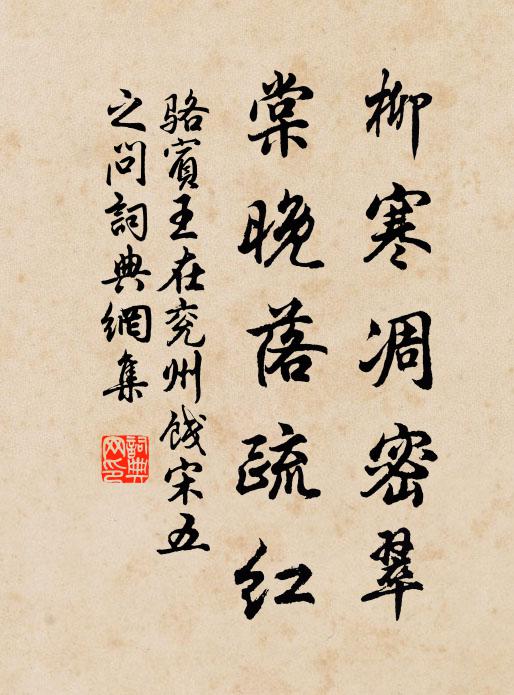 柳寒凋密翠
棠晚落疏红
骆宾王在兖州饯宋五
之问詞典網集
詞典网印